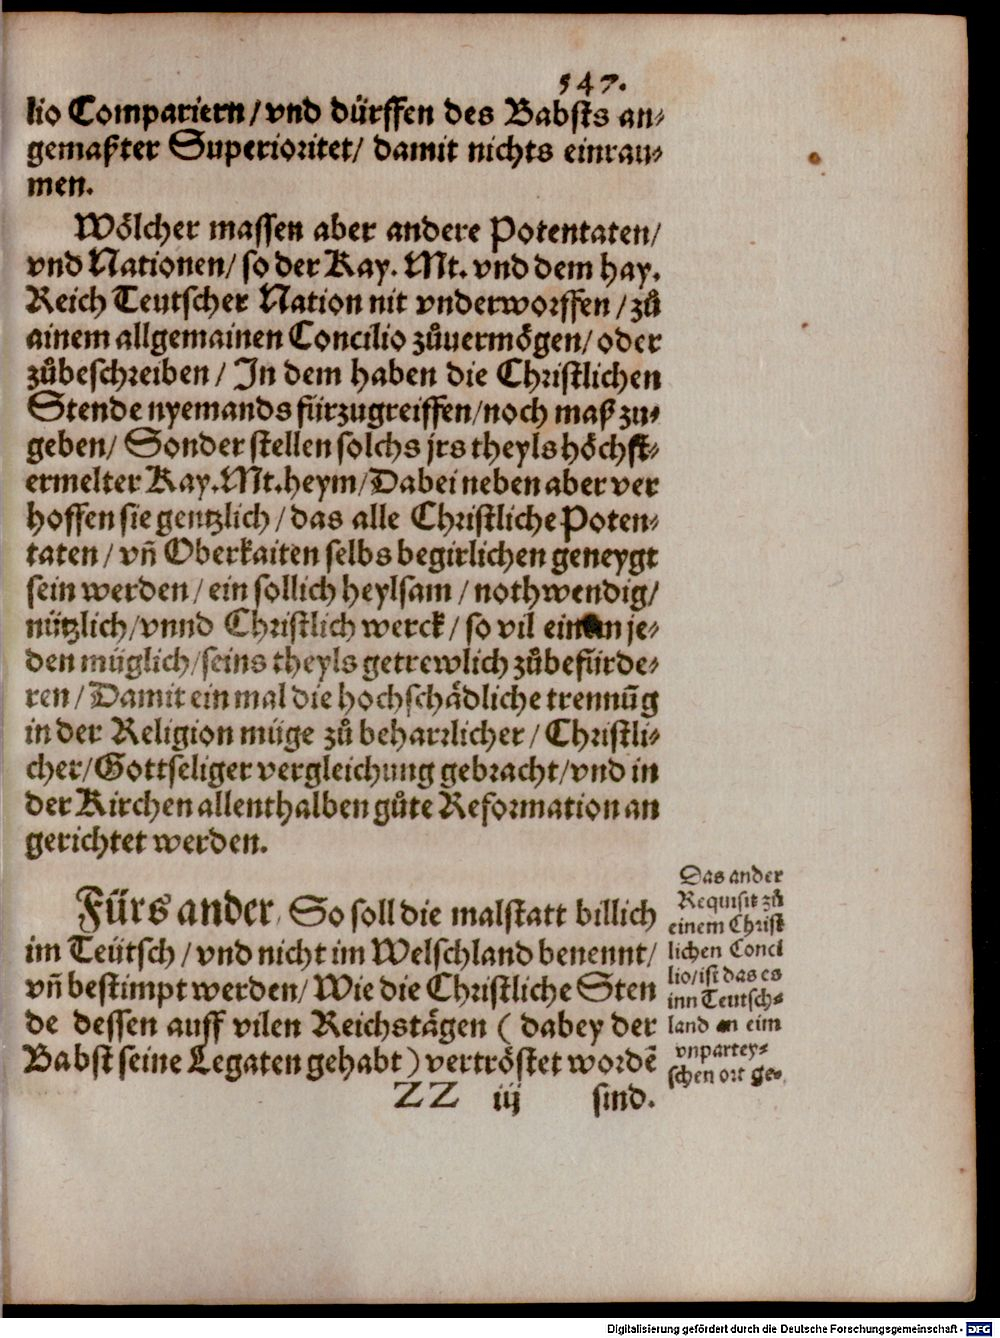 547.
lio Compariern/ vnd dürffen des Babsts an⸗
gemaßter Superioritet/ damit nichts einrau⸗
men.
Wölcher massen aber andere Potentaten/
vnd Nationen/ so der Kay. Mt. vnd dem hay.
Reich Teutscher Nation nit vnderworffen/ zů
ainem allgemainen Concilio zůuermögen/ oder
zůbeschreiben/ In dem haben die Christlichen
Stende nyemands fürzugreiffen/ noch maß zu⸗
geben/ Sonder stellen solchs jrs theyls höchst⸗
ermelter Kay. Mt. heym/ Dabei neben aber ver
hoffen sie gentzlich/ das alle Christliche Poten⸗
taten/ vñ Oberkaiten selbs begirlichen geneygt
sein werden/ ein sollich heylsam/ nothwendig/
nützlich/ vnnd Christlich werck/ so vil einem je⸗
den müglich/ seins theyls getrewlich zůbefürde⸗
ren/ Damit ein mal die hochschädliche trennũg
in der Religion müge zů beharrlicher/ Christli⸗
cher/ Gottseliger vergleichung gebracht/ vnd in
der Kirchen allenthalben gůte Reformation an
gerichtet werden.
Fürs ander, So soll die malstatt billich
im Teütsch/ vnd nicht im Welschland benennt/
vñ bestimpt werden/ Wie die Christliche Sten
de dessen auff vilen Reichstägen ( dabey der
Babst seine Legaten gehabt ) vertröstet wordẽ
ZZ iij sind.
Das ander
Requisit zů
einem Christ
lichen Conci
lio/ ist das es
inn Teutsch⸗
land an eim
vnpartey⸗
schen ort ge⸗
Digitalisierung gefördert durch die Deutsche Forschungsgemeinschaft - DFG